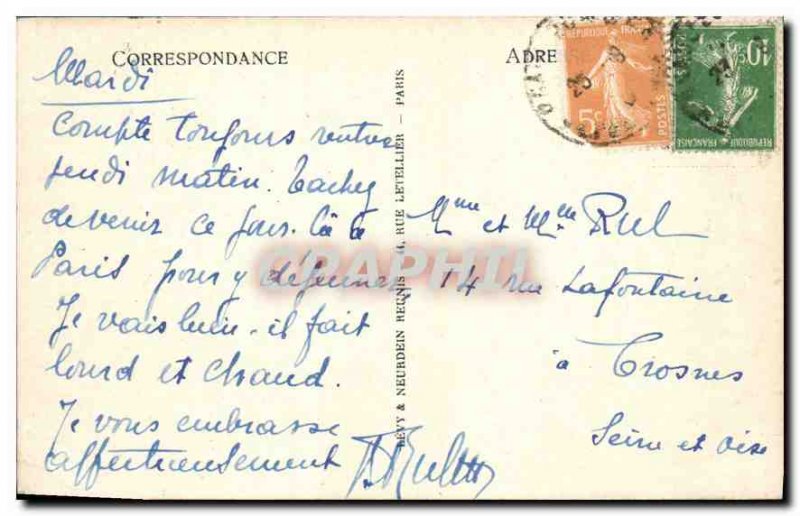 CORRESPONDANCE
ADRE
Mardi
Compte toujours rentrer
jeudi matin. Tachez
de venir ce jour-là à
Paris pour y déjeuner
Je vais bien. il fait
lourd et chaud.
Je vous embrasse
affectueusement
LEVY & NEURDEIN REUNIS 44, RUE LETELLIER — PARIS
Mme et Mlle Ruel
14 rue Lafontaine
à Crosnes
Seine et Oise
REPUBLIQUE FRANÇAISE
5c
POSTES
10c
POSTES
REPUBLIQUE FRANÇAISE
CPAPHIL